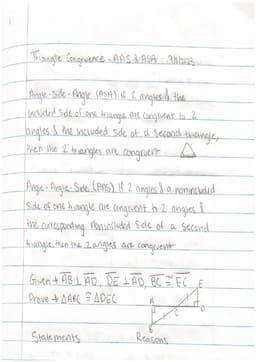 Triangle Congruence - AAS & ASA
Angle-Side-Angle (ASA) If 2 angles & the
included side of one triangle are congruent to 2
angles & the included side of a second triangle,
then the 2 triangles are congruent
Angle-Angle-Side (AAS) If 2 angles & a nonincluded
side of one triangle are congruent to 2 angles &
the corresponding nonincluded side of a second
triangle, then the 2 angles are congruent
Given → AB ⊥ AD, DE ⊥ AD, BC ≅ EC
E
Prove → ΔABC ≅ ΔDEC
A
D
C
B
Statements Reasons